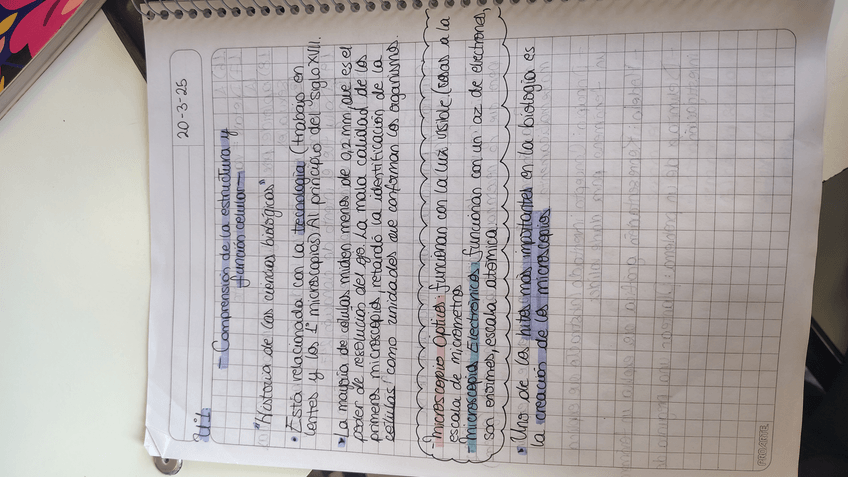 20-3-25
- Comprensión de la estructura y
función celular -
"Historia de las ciencias biológicas"
• Está relacionada con la tecnología (trabajo en
lentes y los 1° microscopios) Al principio del siglo XVII.
• La mayoría de células miden menos de 0,2 mm, que es el
poder de resolución del ojo. La mala calidad de los
primeros microscopios, retardó la identificación de la
células como unidades que conforman los organismos.
Microscopio Óptico: funcionan con la luz visible (cosas a la
escala de micrometros
- microscopia Electrónica: funcionan con un az de electrones,
son enormes, escala atómica
• Uno de los hitos mas importantes en la biología es
la creación de los microscopios